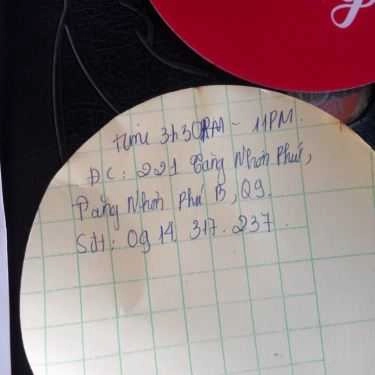 time 3h30PM - 11PM.
ĐC: 221 Tăng Nhơn Phú,
Tăng Nhơn Phú B, Q9.
Sđt: 09 14. 317. 237.